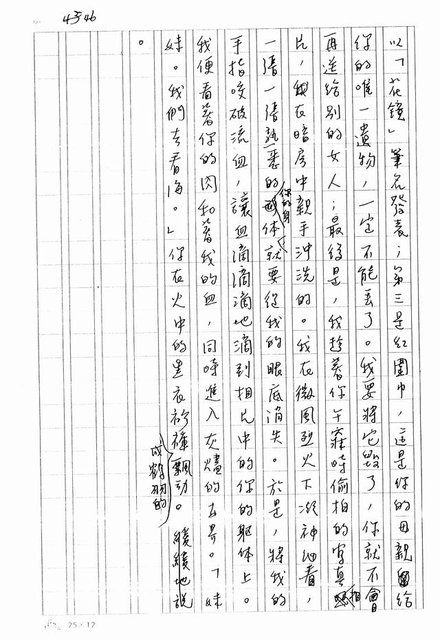 4于46
以「花鏡」筆名發表；第三是紅圍巾，這是你的母親留給
你的唯一遺物，一定不能丟了。我要將它毀了，你就不會
再送給別的女人；最後是，我趁著你午寐時偷拍的寫真相
片，我在暗房中親手沖洗的。我在微風烈火下凝神細看，
一張一張熟悉的你的身體就要從我的眼底消失。於是，將我的
手指咬破流血，讓血滴滴滴地滴到相片中的你的軀體上。
我便看著你的肉和著我的血，同時進入灰燼的世界。「妹
妹。我們去看海。」你在火中的黑衣衫褲飄動。緩緩地說
成鶴羽的
。
25×12